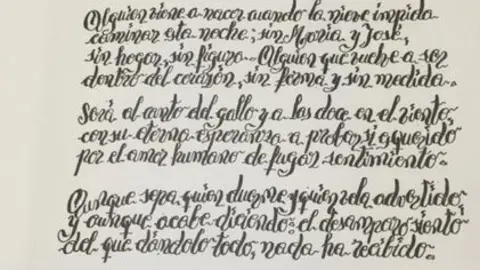 Alguien viene a nacer cuando la nieve impida
caminar esta noche; sin María y José,
sin hogar, sin figura. Alguien que vuelve a ser
dentro del corazón, sin forma y sin medida.
Será al canto del gallo y a las doce en el viento,
con su eterna esperanza a probar si aquerido
por el amor humano de fugaz sentimiento.
Aunque sepa quien duerme y quien vela advertido,
y aunque acabe diciendo: el desamparo siento
del que dándolo todo, nada ha recibido.